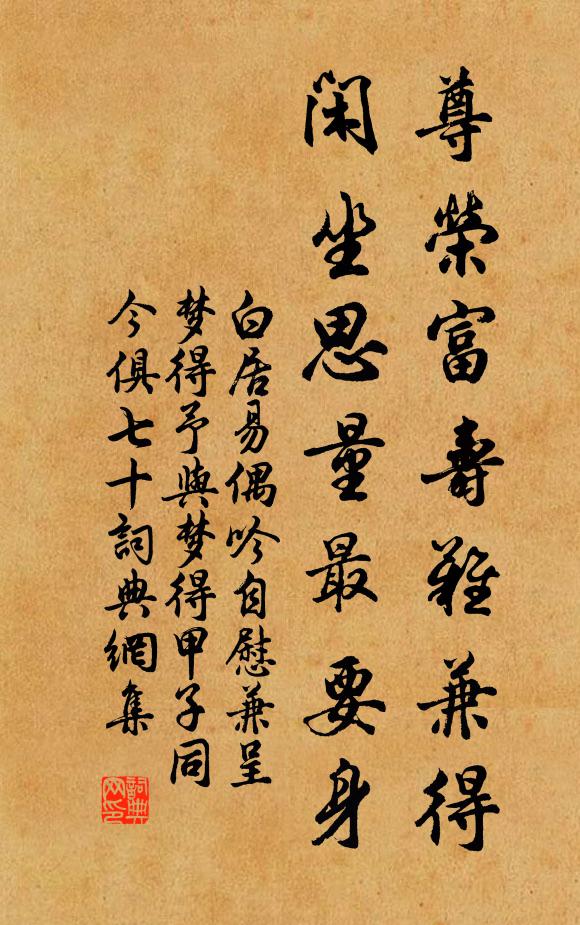 尊榮富壽難兼得
閑坐思量最要身
白居易偶吟自慰兼呈
梦得予與梦得甲子同
今俱七十詞典網集
詞典
网印